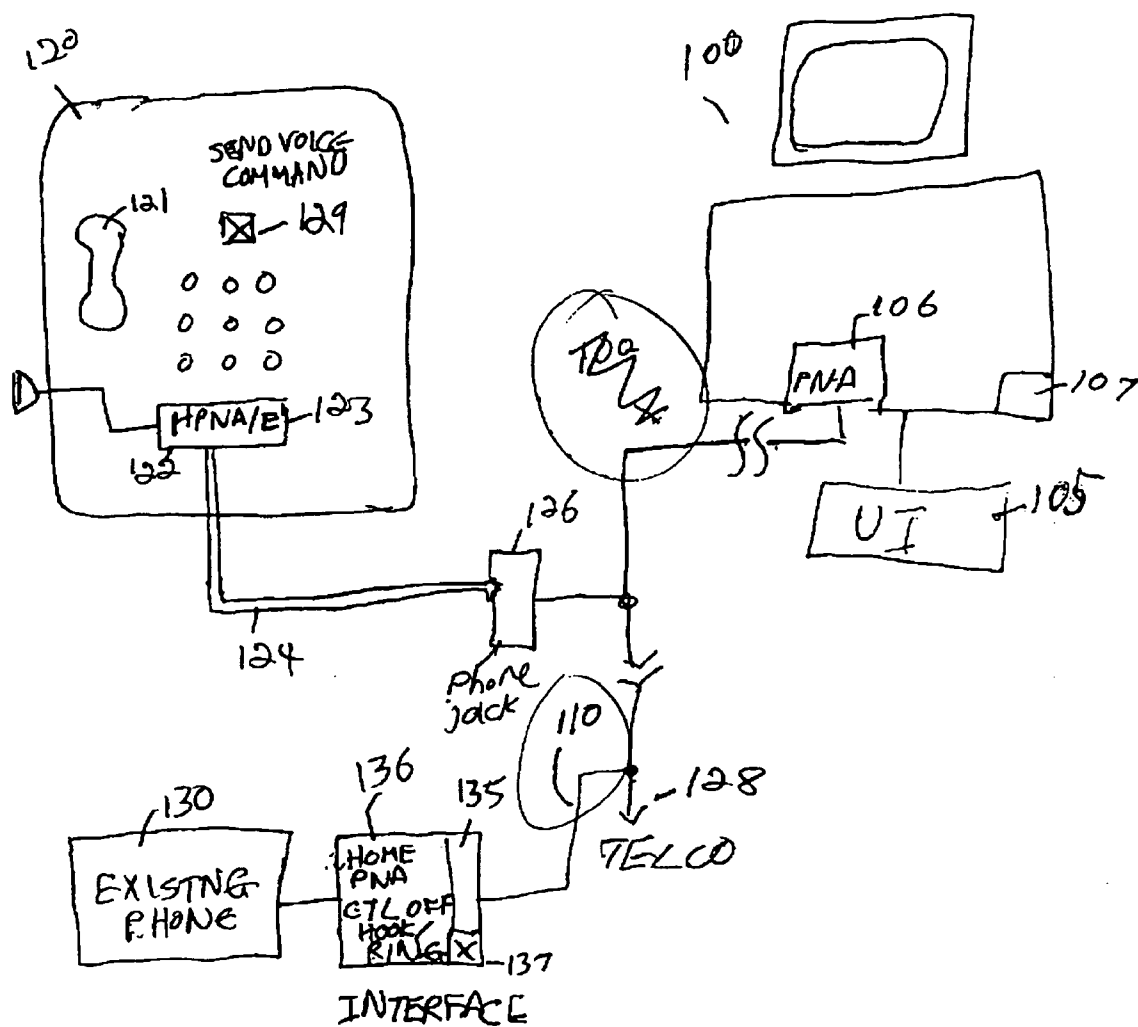 120
100
SEND VOICE
COMMAND
121
129
106
PNA
107
HPNA/E
123
122
UI
105
126
124
Phone
jack
110
136
135
128
130
TELCO
EXISTNG
PHONE
HOME
PNA
CTL OFF
HOOK
RING
X
137
INTERFACE